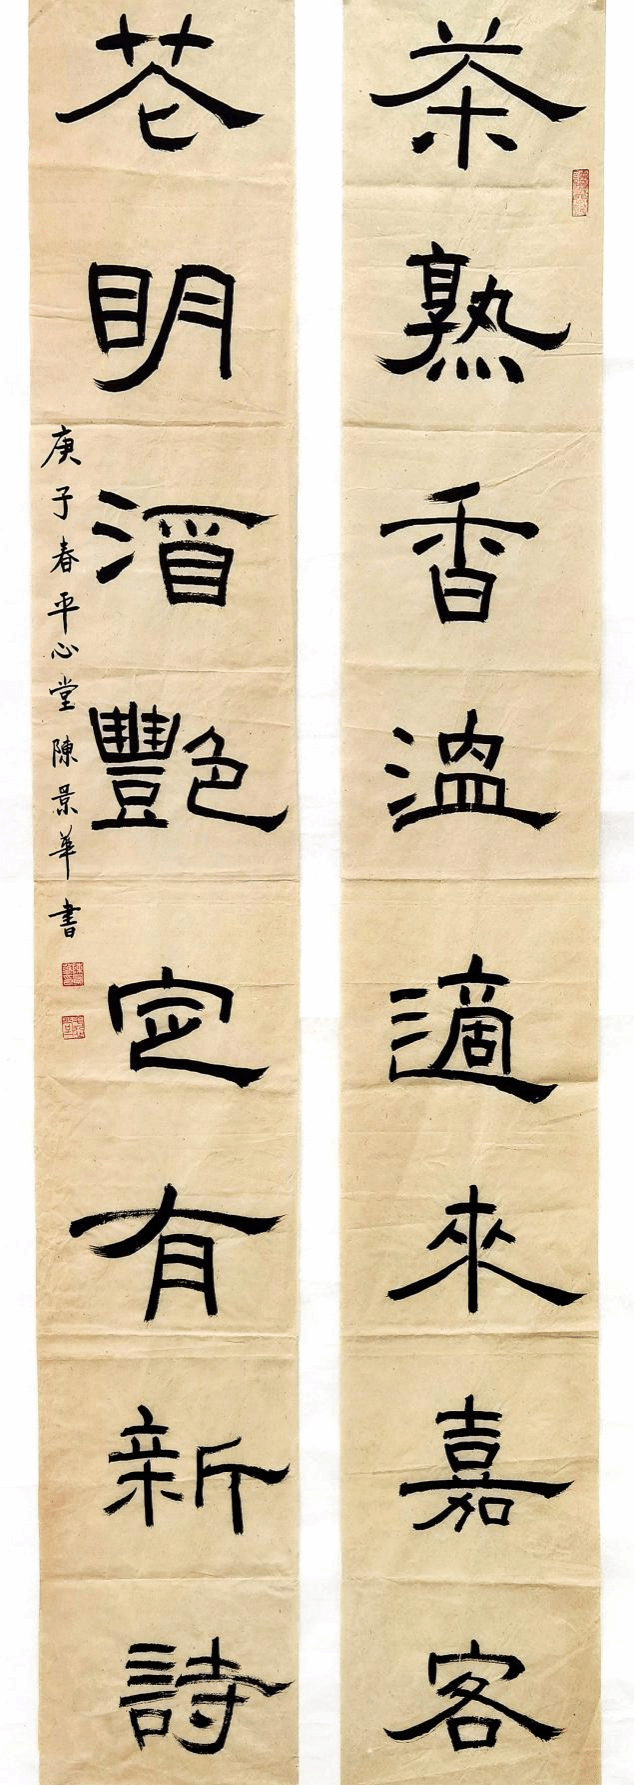 茶熟香溫適來嘉客
花眀酒艷定有新詩
庚子春平心堂陳景華書